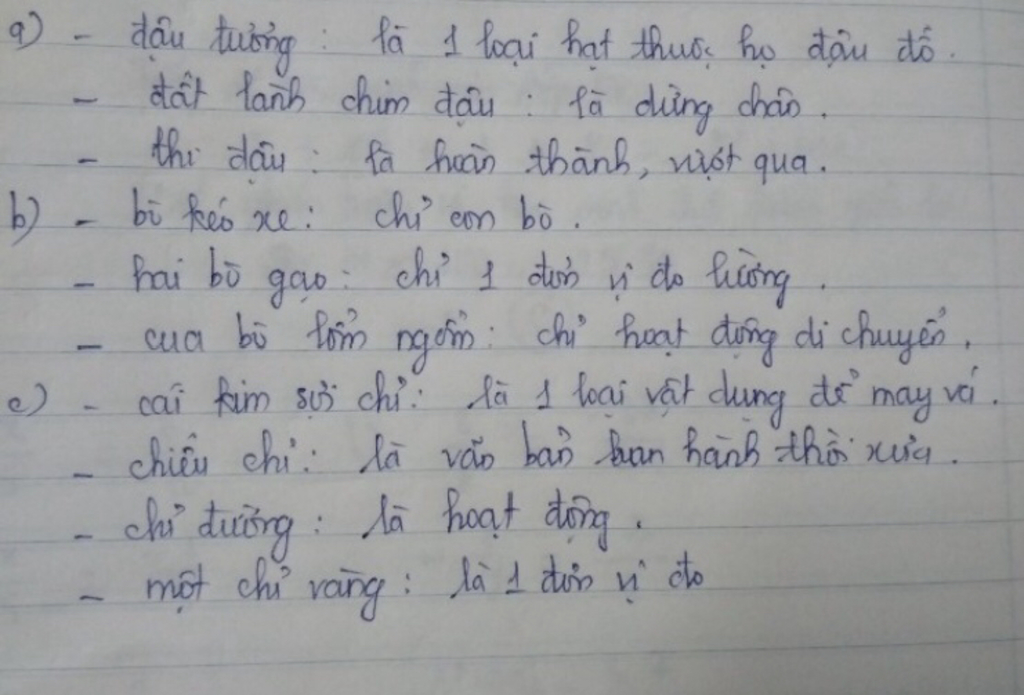 a) - đậu tương : là 1 loại hạt thuộc họ đậu đỗ.
- đất lành chim đậu : là dừng chân.
- thi đậu : là hoàn thành, vượt qua.
b) - bò kéo xe : chỉ con bò.
- hai bò gạo : chỉ 1 đơn vị đo lường.
- cua bò lổm ngổm : chỉ hoạt động di chuyển.
c) - cái kim sợi chỉ : là 1 loại vật dụng để may vá.
- chiếu chỉ : là văn bản ban hành thời xưa.
- chỉ đường : là hoạt động.
- một chỉ vàng : là 1 đơn vị đo